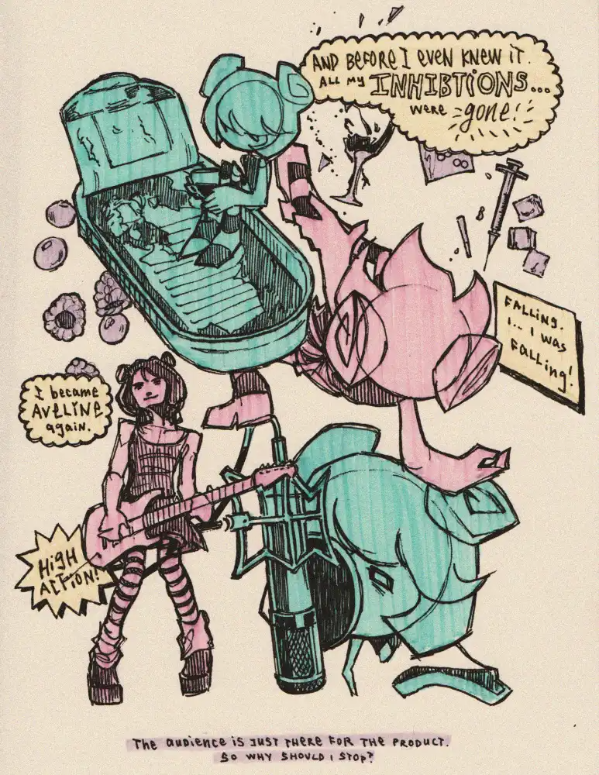 AND BEFORE I EVEN KNEW IT.
ALL MY INHIBTIONS...
WERE gone!
FALLING.
I... I WAS
FALLING!
I became
AVELINE
again.
HIGH
ACTION!
THE AUDIENCE IS JUST THERE FOR THE PRODUCT.
SO WHY SHOULD I STOP?